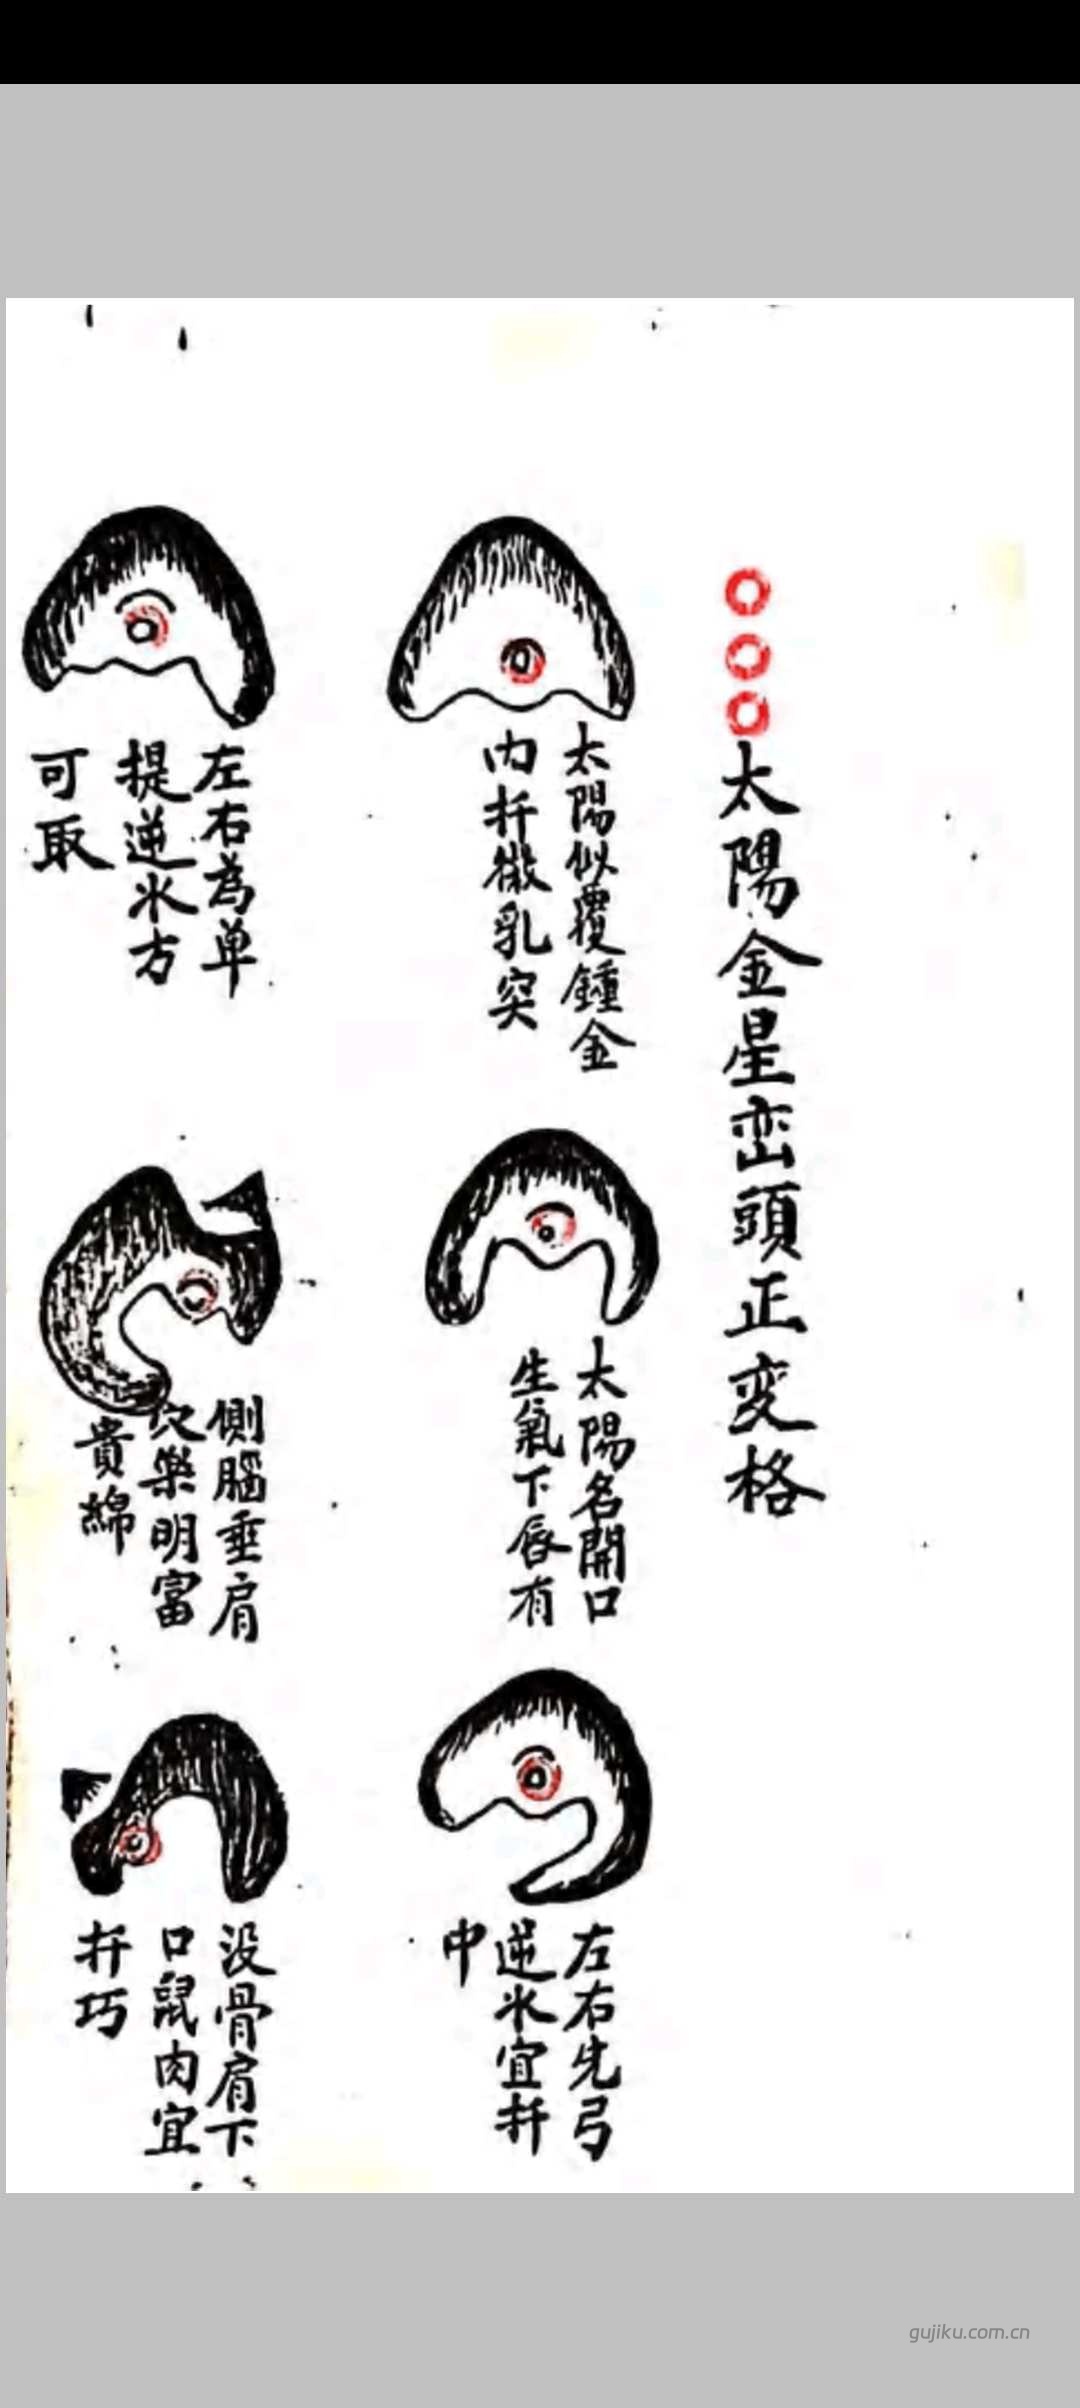 太陽金星峦頭正变格
太陽似覆鍾金
内扦微乳突
太陽名開口
生氣下唇有
左右先弓
逆水宜扦
中
左右為单
提逆水方
可取
側腦垂肩
穴樂明富
貴綿
没骨肩下
口鼠肉宜
扦巧
gujiku.com.cn